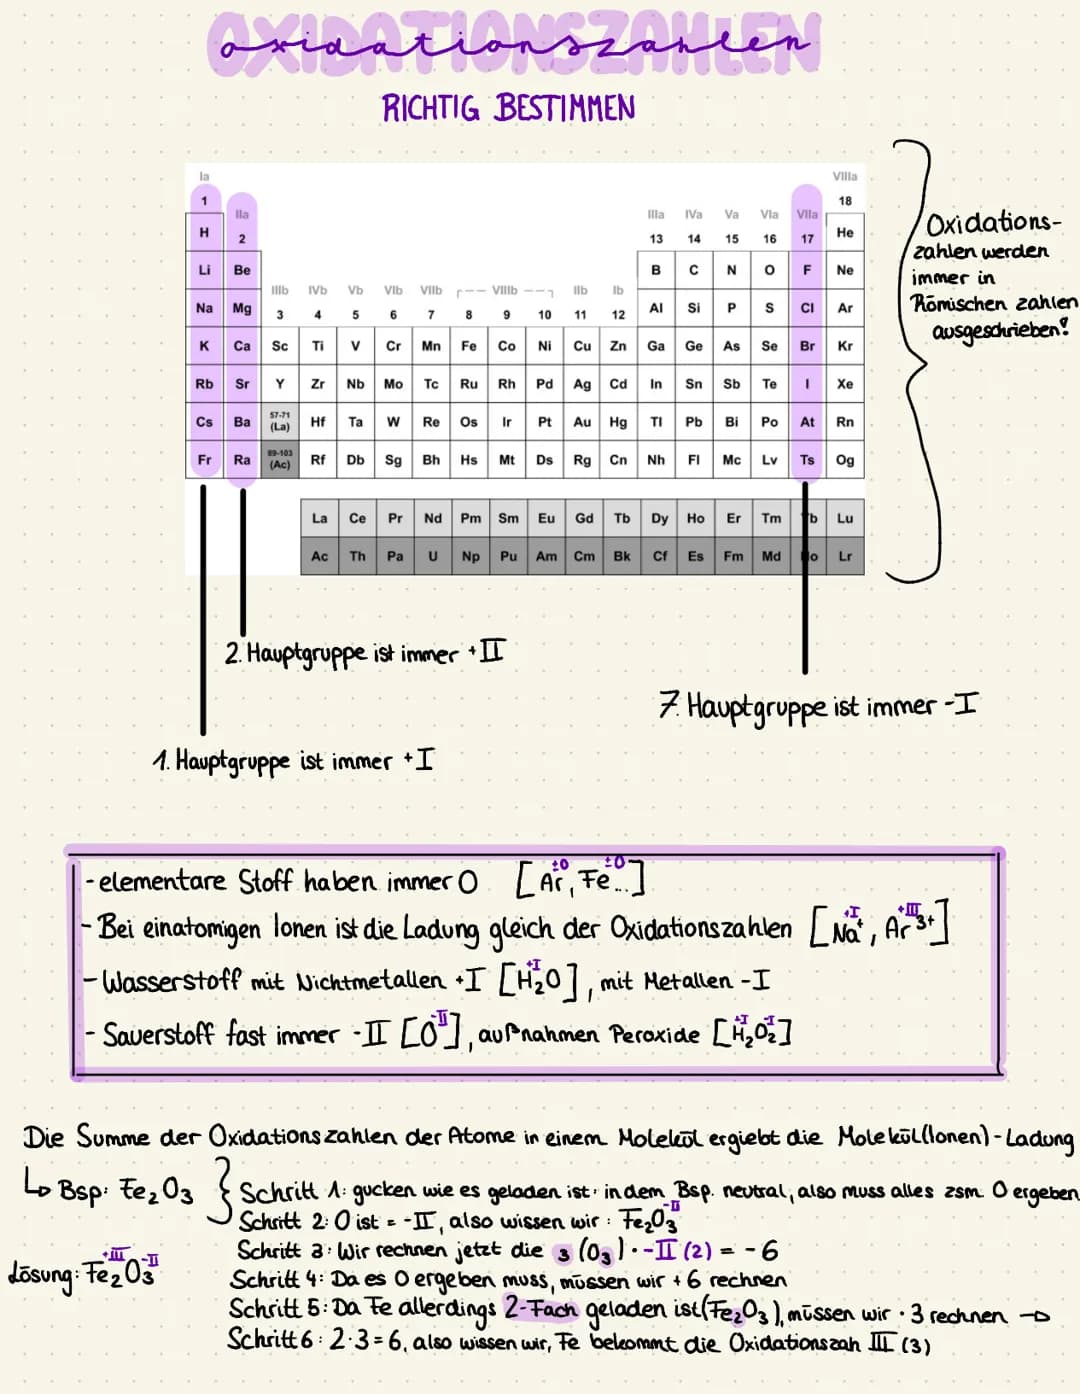 OXIDATIONSZAHLEN
oxidationszahlen
RICHTIG BESTIMMEN
Ia VIIIa
1 18
IIa IIIa IVa Va VIa VIIa
H 2 13 14 15 16 17 He
Li Be B C N O F Ne
IIIb IVb Vb VIb VIIb VIIIb IIb Ib
Na Mg 3 4 5 6 7 8 9 10 11 12 Al Si P S Cl Ar
K Ca Sc Ti V Cr Mn Fe Co Ni Cu Zn Ga Ge As Se Br Kr
Rb Sr Y Zr Nb Mo Tc Ru Rh Pd Ag Cd In Sn Sb Te I Xe
Cs Ba 57-71 (La) Hf Ta W Re Os Ir Pt Au Hg Tl Pb Bi Po At Rn
Fr Ra 89-103 (Ac) Rf Db Sg Bh Hs Mt Ds Rg Cn Nh Fl Mc Lv Ts Og
La Ce Pr Nd Pm Sm Eu Gd Tb Dy Ho Er Tm Yb Lu
Ac Th Pa U Np Pu Am Cm Bk Cf Es Fm Md No Lr
Oxidations-
zahlen werden
immer in
Römischen zahlen
ausgeschrieben!
2. Hauptgruppe ist immer +II
7. Hauptgruppe ist immer -I
1. Hauptgruppe ist immer +I
±0 ±0
- elementare Stoff haben immer 0 [Ar, Fe...]
+I +III
- Bei einatomigen Ionen ist die Ladung gleich der Oxidationszahlen [Na⁺, Ar³⁺]
+I
- Wasserstoff mit Nichtmetallen +I [H₂O], mit Metallen -I
-II +I -I
- Sauerstoff fast immer -II [O], außnahmen Peroxide [H₂O₂]
Die Summe der Oxidationszahlen der Atome in einem Molekül ergiebt die Molekül(Ionen)-Ladung
↳ Bsp: Fe₂O₃ { Schritt 1: gucken wie es geladen ist: in dem Bsp. neutral, also muss alles zsm. 0 ergeben
-II
Schritt 2: O ist = -II, also wissen wir: Fe₂O₃
Schritt 3: Wir rechnen jetzt die 3 (O₃) · -II (2) = -6
+III -II
Lösung: Fe₂O₃
Schritt 4: Da es 0 ergeben muss, müssen wir +6 rechnen
Schritt 5: Da Fe allerdings 2-Fach geladen ist (Fe₂O₃), müssen wir · 3 rechnen →
Schritt 6: 2·3=6, also wissen wir, Fe bekommt die Oxidationszah III (3)